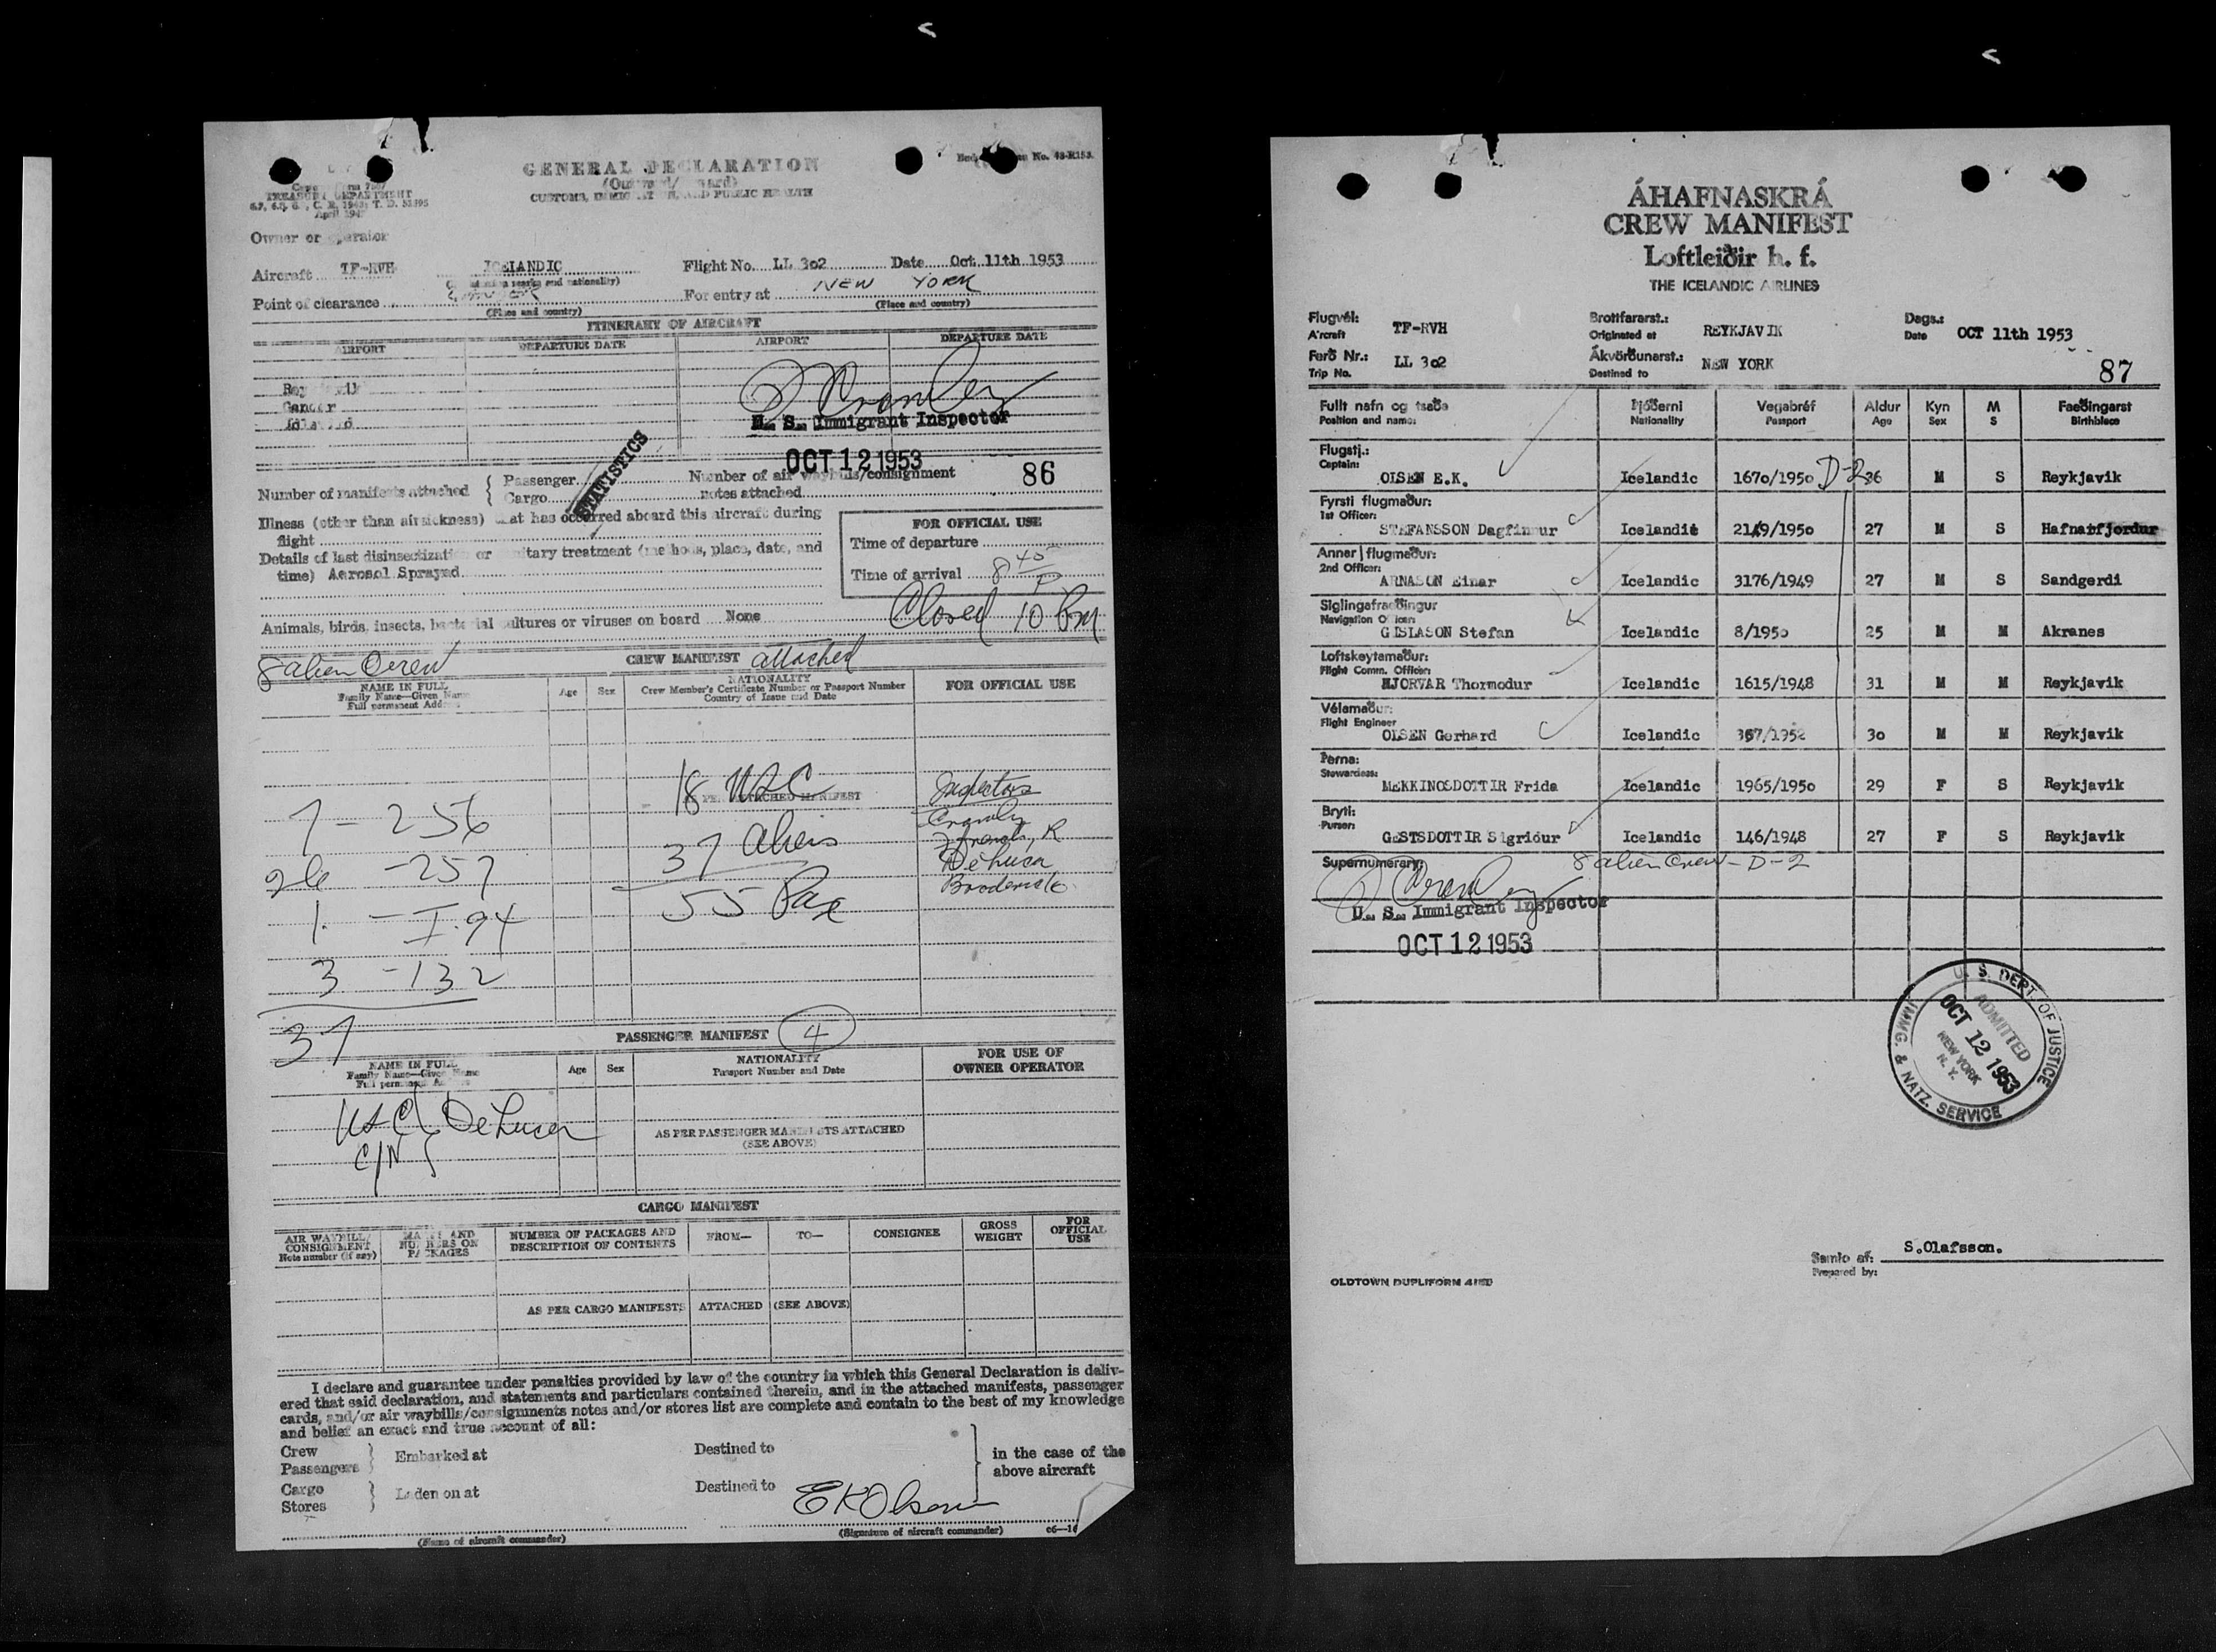 GENERAL DECLARATION
TREASURY DEPARTMENT
April
CUSTOMS, AND PUBLIC HEALTH
No. 43-R153.
Owner or operator
Aircraft TF-RVH ICELANDIC Flight No. LL 302 Date Oct 11th 1953
marks and nationality)
Point of clearance GANDER For entry at NEW YORK
(Place and country) (Place and country)
ITINERARY OF AIRCRAFT
AIRPORT DEPARTURE DATE AIRPORT DEPARTURE DATE
Reykjavik
Gander
Idlewild
U. S. Immigrant Inspector
OCT 12 1953
STATISTICS
86
Number of manifests attached { Passenger Number of air waybills/consignment
Cargo notes attached
Illness (other than airsickness) that has occurred aboard this aircraft during
flight
Details of last disinsectization or sanitary treatment (methods, place, date, and
time) Aerosol Sprayed
FOR OFFICIAL USE
Time of departure
Time of arrival 8 40 P
Closed 10 Pm
Animals, birds, insects, bacterial cultures or viruses on board None
8 alien Crew CREW MANIFEST attached
NAME IN FULL
Family Name—Given Name
Full permanent Address
Age Sex
NATIONALITY
Crew Member's Certificate Number or Passport Number
Country of Issue and Date
FOR OFFICIAL USE
18 USC
AS PER ATTACHED MANIFEST
37 Aliens
55 Pax
Inspectors
Cromley
French, R
DeLuca
Broderick
7 - 256
26 - 257
1. - I-94
3 - 132
37
PASSENGER MANIFEST 4
NAME IN FULL
Family Name—Given Name
Full permanent Address
Age Sex
NATIONALITY
Passport Number and Date
FOR USE OF
OWNER OPERATOR
USC DeLuca
C/N
AS PER PASSENGER MANIFESTS ATTACHED
(SEE ABOVE)
CARGO MANIFEST
AIR WAYBILL/
CONSIGNMENT
Note number (if any)
MARKS AND
NUMBERS ON
PACKAGES
NUMBER OF PACKAGES AND
DESCRIPTION OF CONTENTS
FROM— TO— CONSIGNEE
GROSS
WEIGHT
FOR
OFFICIAL
USE
AS PER CARGO MANIFESTS ATTACHED (SEE ABOVE)
I declare and guarantee under penalties provided by law of the country in which this General Declaration is deliv-
ered that said declaration, and statements and particulars contained therein, and in the attached manifests, passenger
cards, and/or air waybills/consignments notes and/or stores list are complete and contain to the best of my knowledge
and belief an exact and true account of all:
Crew
Passengers } Embarked at Destined to
Cargo
Stores } Laden on at Destined to
in the case of the
above aircraft
EKOlsen
(Name of aircraft commander) (Signature of aircraft commander)
ÁHAFNASKRÁ
CREW MANIFEST
Loftleiðir h. f.
THE ICELANDIC AIRLINES
Flugvél:
Aircraft TF-RVH
Brottfararst.:
Originated at REYKJAVIK
Dags.:
Date OCT 11th 1953
Ferð Nr.:
Trip No. LL 302
Ákvörðunarst.:
Destined to NEW YORK
87
Fullt nafn og staða Þjóðerni Vegabréf Aldur Kyn M Fæðingarst
Position and name: Nationality Passport Age Sex S Birthplace
Flugstj.:
Captain:
OLSEN E.K. Icelandic 1670/1950 D-2 36 M S Reykjavik
Fyrsti flugmaður:
1st Officer:
STEFANSSON Dagfinnur Icelandic 2149/1950 27 M S Hafnarfjordur
Annar flugmaður:
2nd Officer:
ARNASON Einar Icelandic 3176/1949 27 M S Sandgerdi
Siglingafræðingur
Navigation Officer:
GISLASON Stefan Icelandic 8/1950 25 M M Akranes
Loftskeytamaður:
Flight Comm. Officer:
HJORVAR Thormodur Icelandic 1615/1948 31 M M Reykjavik
Vélamaður:
Flight Engineer
OLSEN Gerhard Icelandic 367/1952 30 M M Reykjavik
Þerna:
Stewardess:
MEKKINOSDOTTIR Frida Icelandic 1965/1950 29 F S Reykjavik
Bryti:
Purser:
GESTSDOTTIR Sigridur Icelandic 146/1948 27 F S Reykjavik
Supernumerary: 8 alien Crew - D-2
U. S. Immigrant Inspector
OCT 12 1953
U. S. DEPT. OF JUSTICE
IMMG. & NATZ. SERVICE
ADMITTED
OCT 12 1953
NEW YORK
N. Y.
Samið af: S.Olafsson.
Prepared by:
OLDTOWN DUPLIFORM